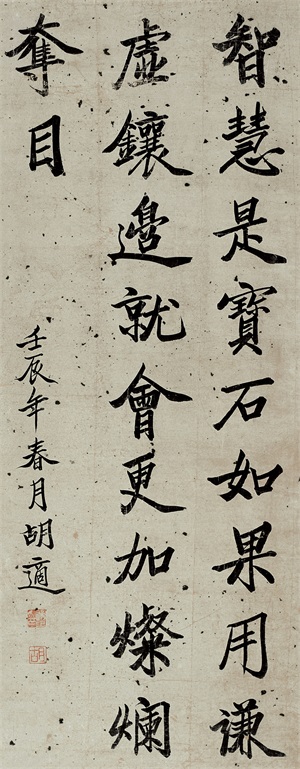 智慧是寶石如果用謙
虛鑲邊就會更加燦爛
奪目
壬辰年春月胡適